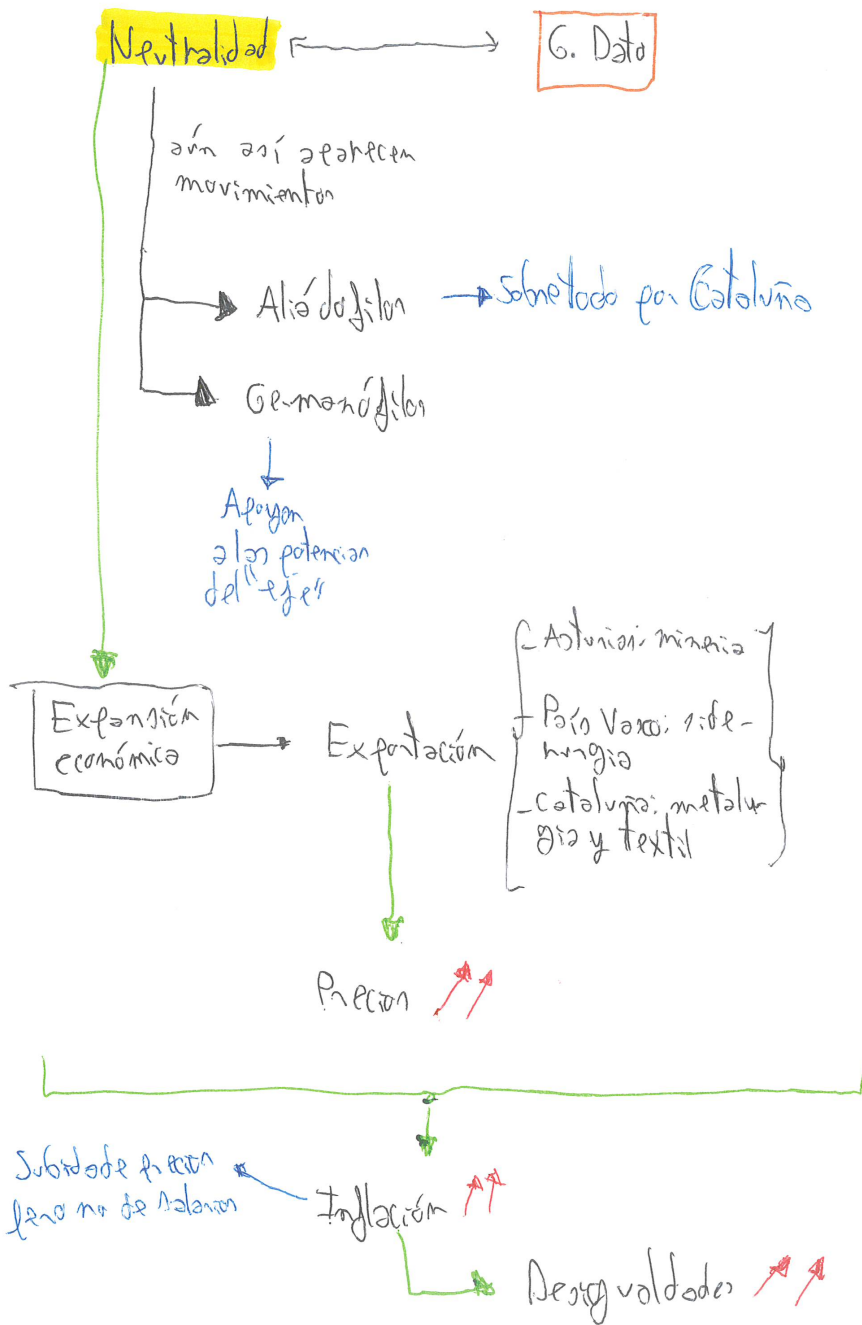 Neutralidad
G. Dato
aún así aparecen
movimientos
Aliádofilos
Sobretodo por Cataluña
Germanófilos
Apoyan
a las potencias
del "eje"
Expansión
económica
Exportación
- Asturias: mineria
- País Vasco: side-
rurgia
- Cataluña: metalur
gia y textil
Precios
Subida de precios
pero no de salarios
Inflación
Desigualdades